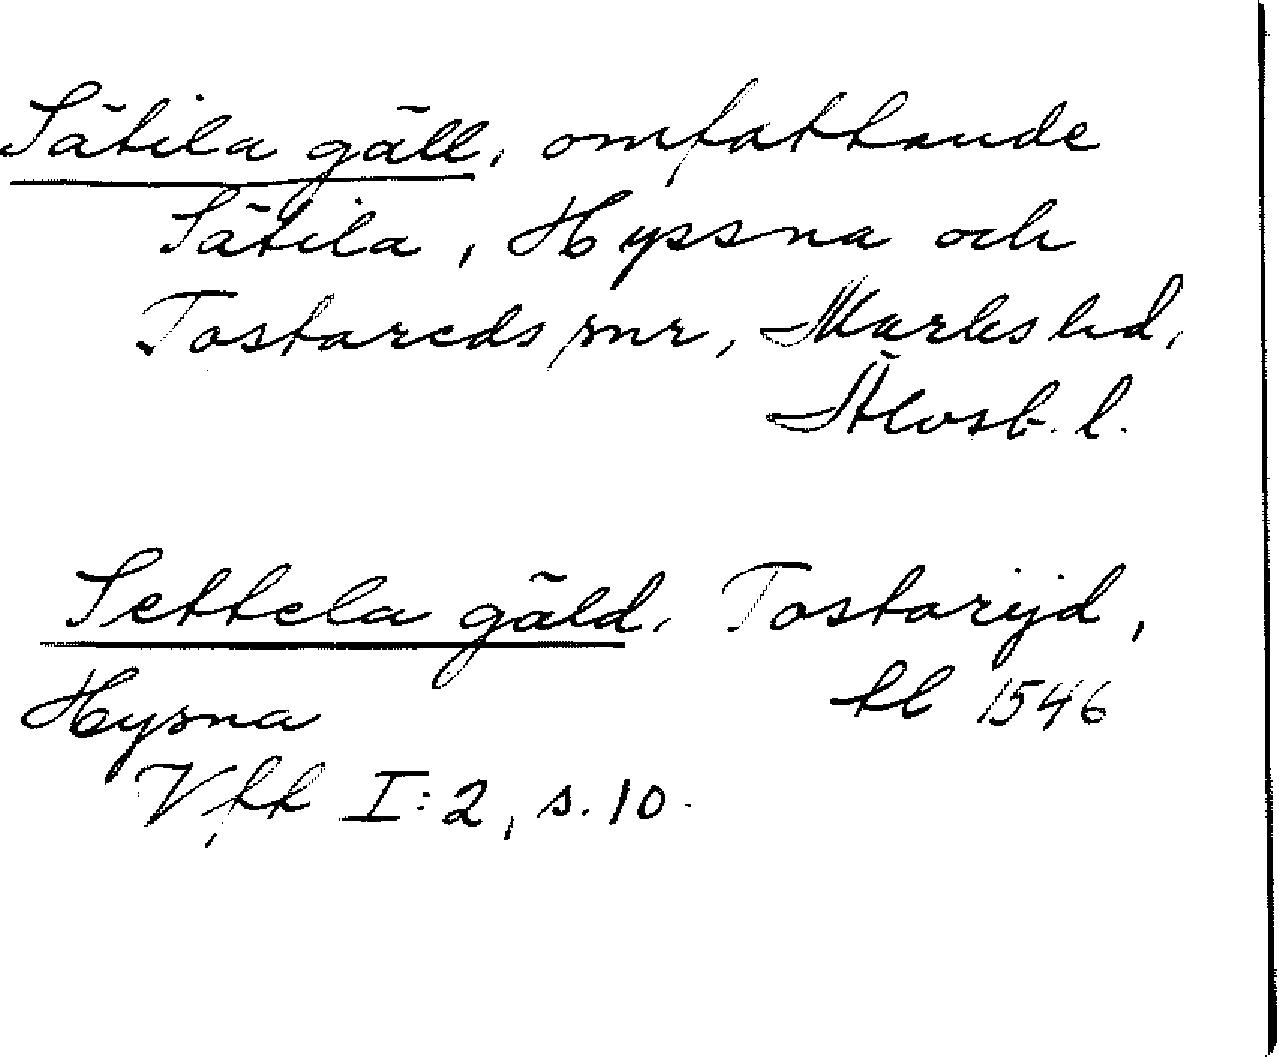 Sätila gäll, omfattande
Sätila, Hyssna och
Tostareds snr, Marks hd,
Älvsb. l.
Settela gäld. Tostarijd,
Hysna tl 1546
Vfk I:2, s. 10.